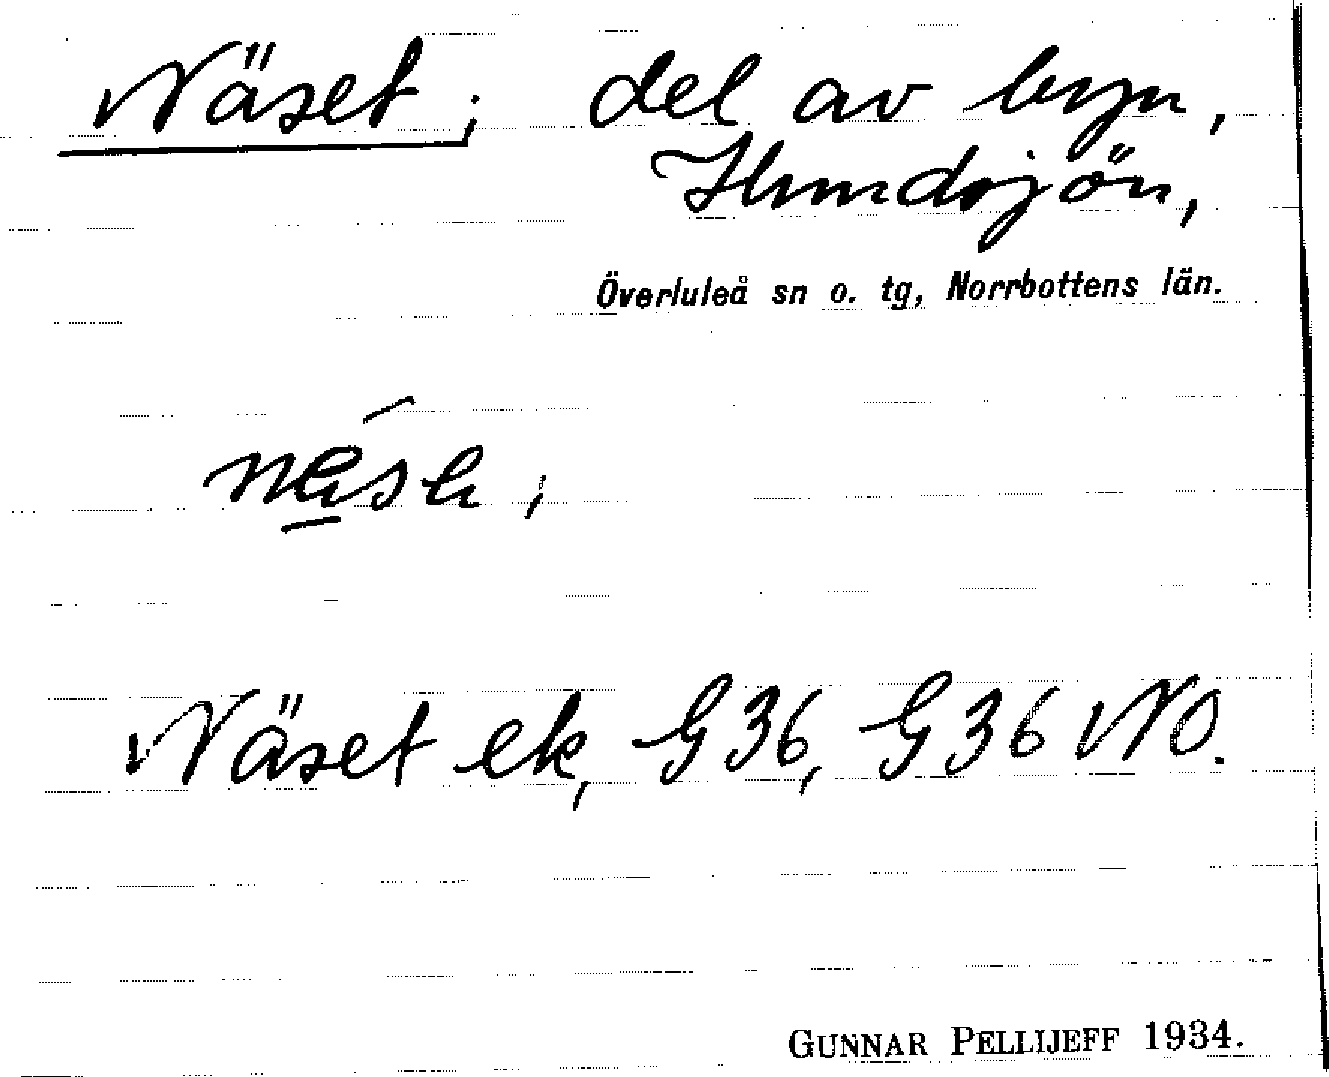 Näset; del av byn,
Hundsjön,
Överluleå sn o. tg, Norrbottens län.
Näset ek, G36, G36 NO.
GUNNAR PELLIJEFF 1934.